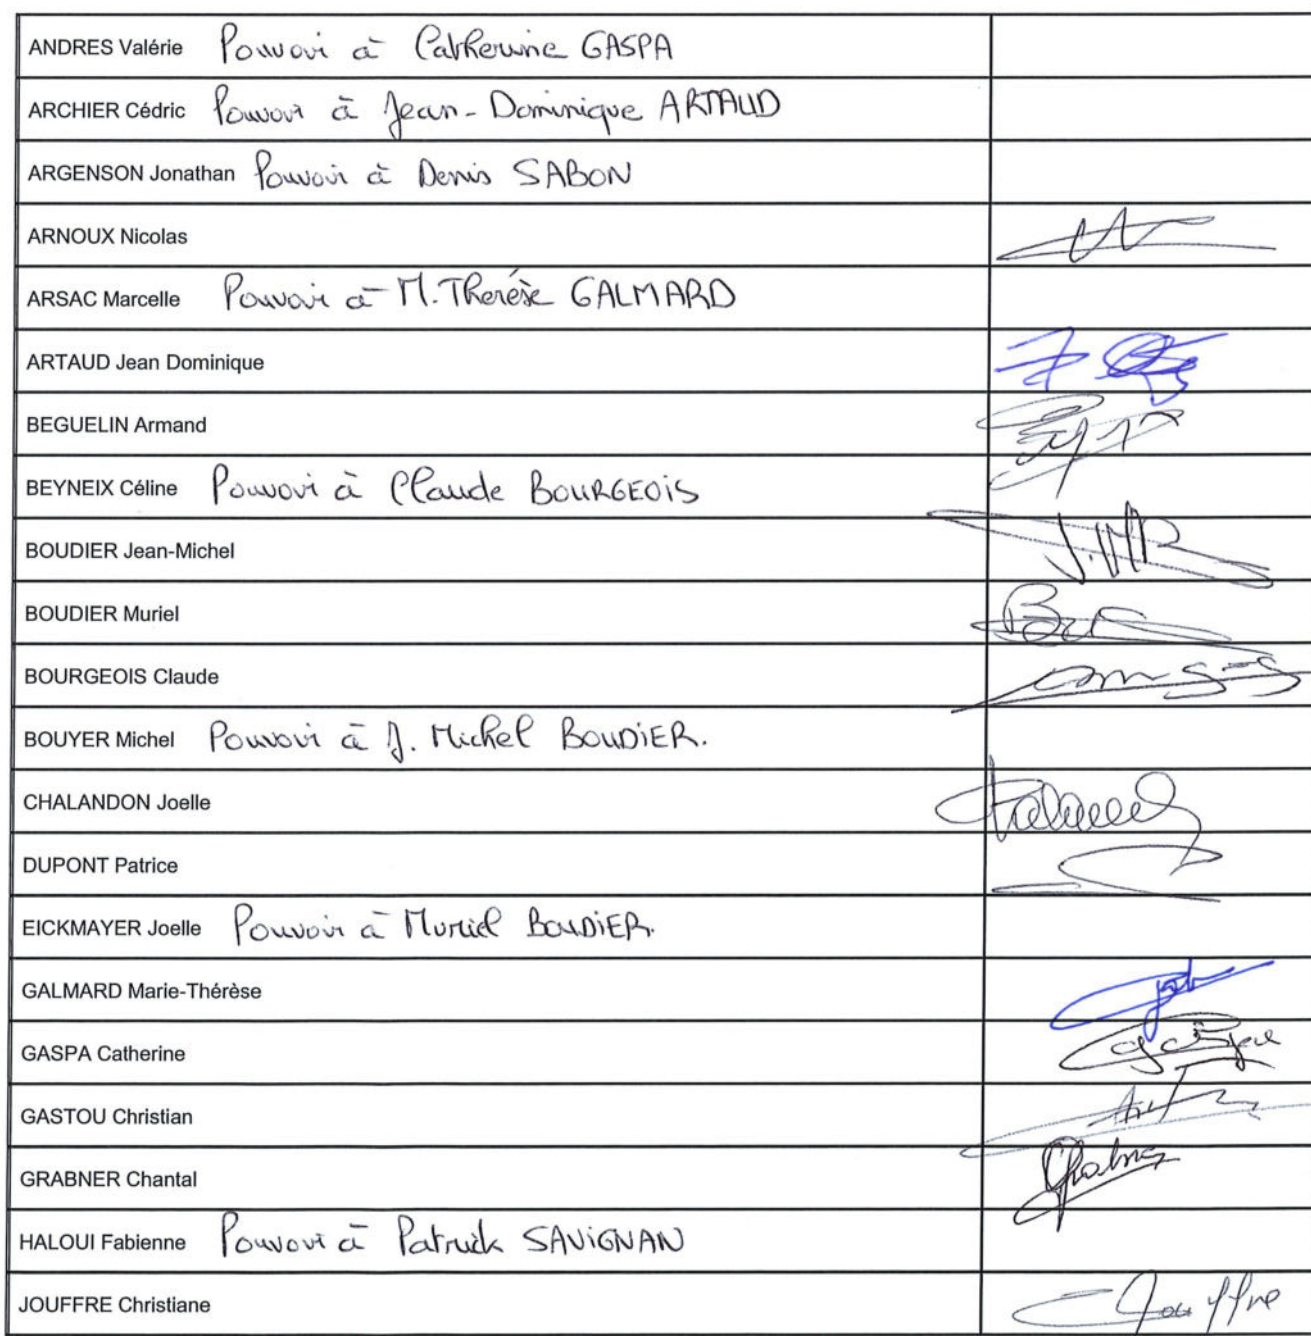 ANDRES Valérie Pouvoir à Catherine GASPA
ARCHIER Cédric Pouvoir à Jean-Dominique ARTAUD
ARGENSON Jonathan Pouvoir à Denis SABON
ARNOUX Nicolas
ARSAC Marcelle Pouvoir à M. Therèse GALMARD
ARTAUD Jean Dominique
BEGUELIN Armand
BEYNEIX Céline Pouvoir à Claude BOURGEOIS
BOUDIER Jean-Michel J.MB
BOUDIER Muriel
BOURGEOIS Claude
BOUYER Michel Pouvoir à J. Michel BOUDIER.
CHALANDON Joelle
DUPONT Patrice
EICKMAYER Joelle Pouvoir à Muriel BOUDIER.
GALMARD Marie-Thérèse
GASPA Catherine
GASTOU Christian
GRABNER Chantal
HALOUI Fabienne Pouvoir à Patrick SAVIGNAN
JOUFFRE Christiane Jouffre